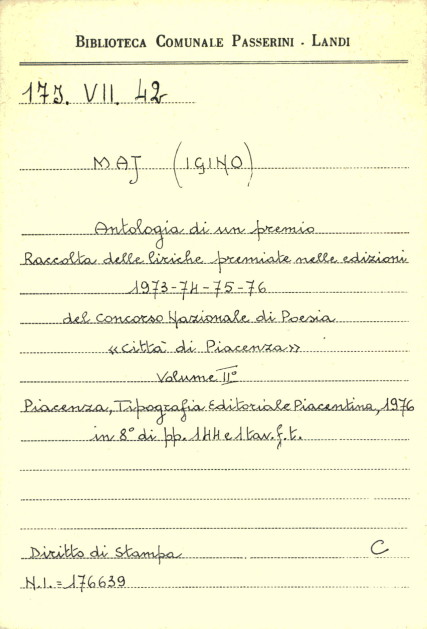 BIBLIOTECA COMUNALE PASSERINI - LANDI
17J. VII. 42
MAJ (IGINO)
Antologia di un premio
Raccolta delle liriche premiate nelle edizioni
1973-74-75-76
del Concorso Nazionale di Poesia
«Città di Piacenza»
Volume II°
Piacenza, Tipografia Editoriale Piacentina, 1976
in 8° di pp. 144 e 1 tav. f. t.
Diritto di Stampa C
N.I. = 176639